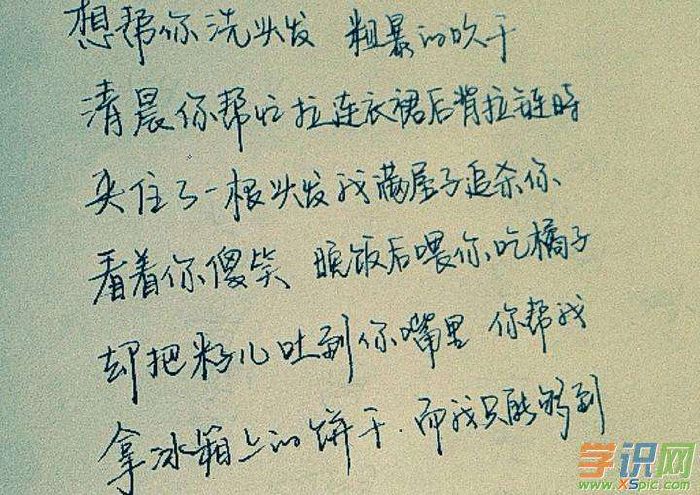 想帮你洗头发 粗暴的吹干
清晨你帮忙拉连衣裙后背拉链时
夹住了一根头发我满屋子追杀你
看着你傻笑 晚饭后喂你吃橘子
却把籽儿吐到你嘴里 你帮我
拿冰箱上的饼干.而我只能够到
学识网
www.XSpic.com